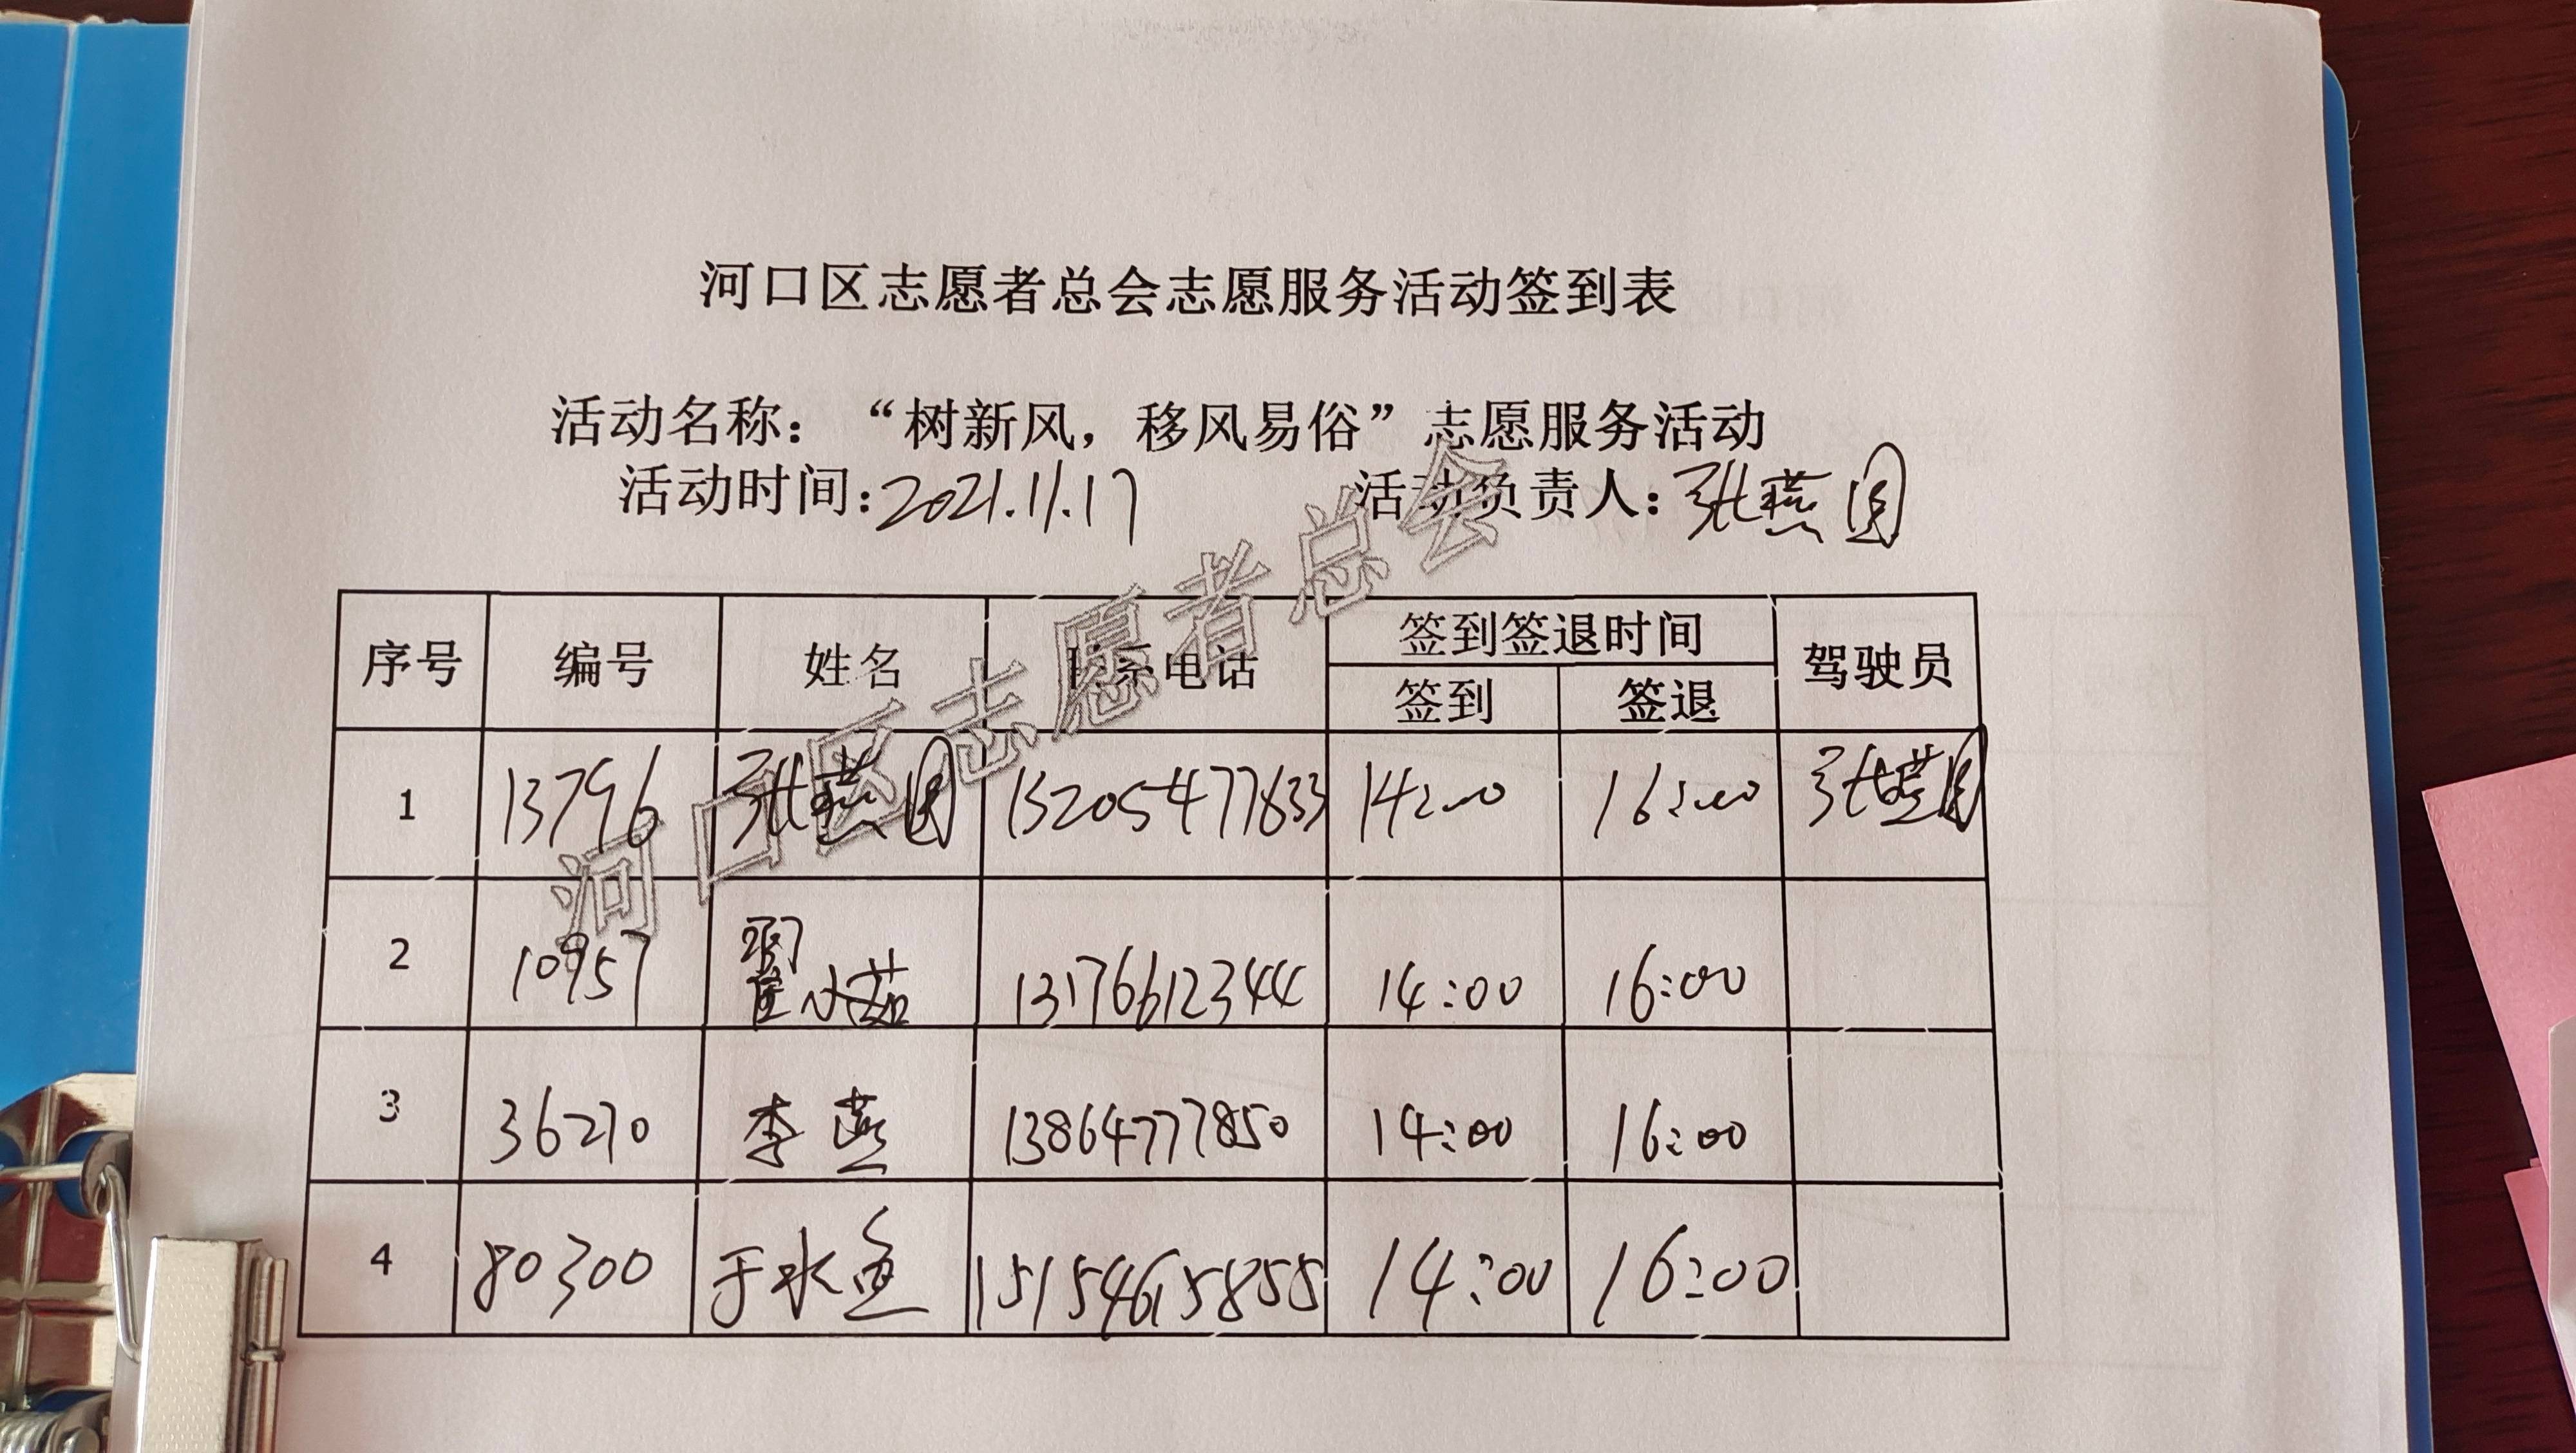 河口区志愿者总会志愿服务活动签到表
活动名称：“树新风，移风易俗”志愿服务活动
活动时间：2021.11.17 活动负责人：张燕
序号 编号 姓名 联系电话 签到签退时间 驾驶员
签到 签退
1 13796 张燕 13205477833 14:00 16:00 张燕
2 10957 翟小茹 13176612344 14:00 16:00
3 36270 李燕 13864777850 14:00 16:00
4 80300 于水鱼 15154615855 14:00 16:00
河口区志愿者总会